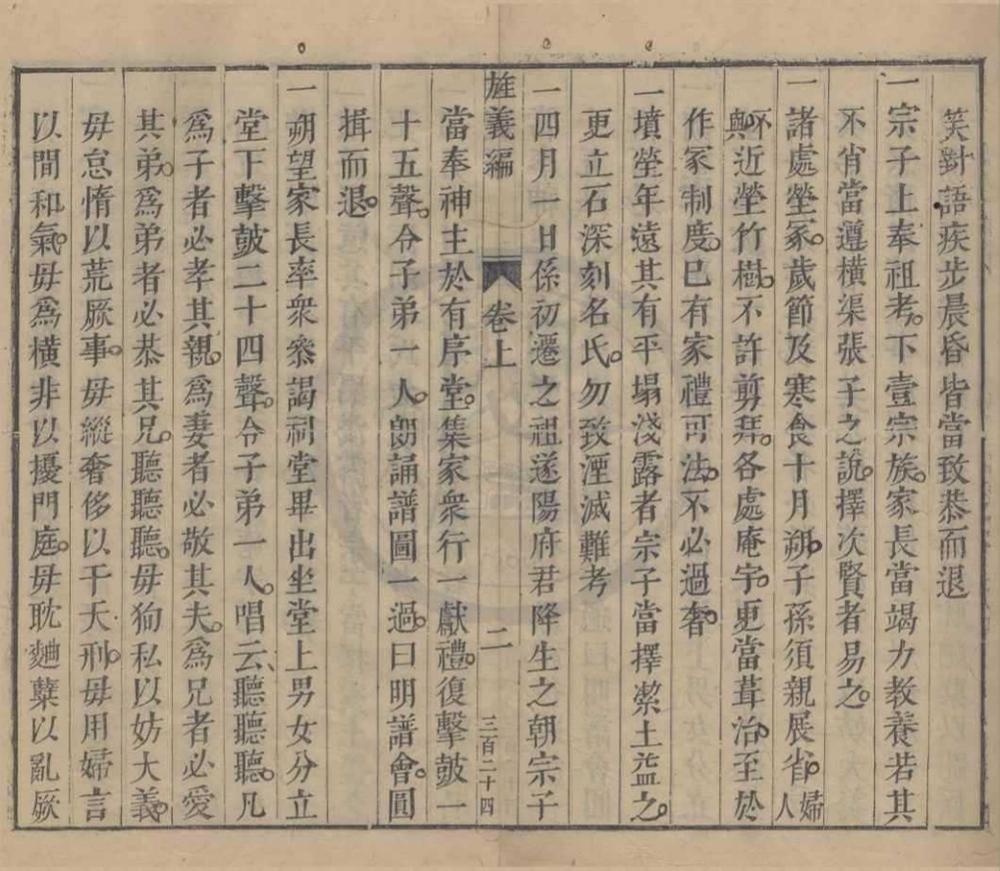 笑對語疾步晨昏皆當致恭而退
一宗子上奉祖考下壹宗族家長當竭力教養若其
不肖當遵橫渠張子之說擇次賢者易之
一諸處塋冢歲節及寒食十月朔子孫須親展省婦人
不與近塋竹樹不許剪拜各處庵宇更當葺治至於
作冢制度已有家禮可法不必過奢
一墳塋年遠其有平塌淺露者宗子當擇潔土益之
更立石深刻名氏勿致湮滅難考
一四月一日係初遷之祖遂陽府君降生之朝宗子
旌義編 卷上 二 三百二十四
當奉神主於有序堂集家衆行一獻禮復擊鼓一
十五聲令子弟一人朗誦譜圖一過曰明譜會圓
揖而退
一朔望家長率衆叅謁祠堂畢出坐堂上男女分立
堂下擊鼓二十四聲令子弟一人唱云聽聽聽凡
爲子者必孝其親爲妻者必敬其夫爲兄者必愛
其弟爲弟者必恭其兄聽聽聽毋狥私以妨大義
毋怠惰以荒厥事毋縱奢侈以干天刑毋用婦言
以間和氣毋爲橫非以擾門庭毋耽麯蘖以亂厥